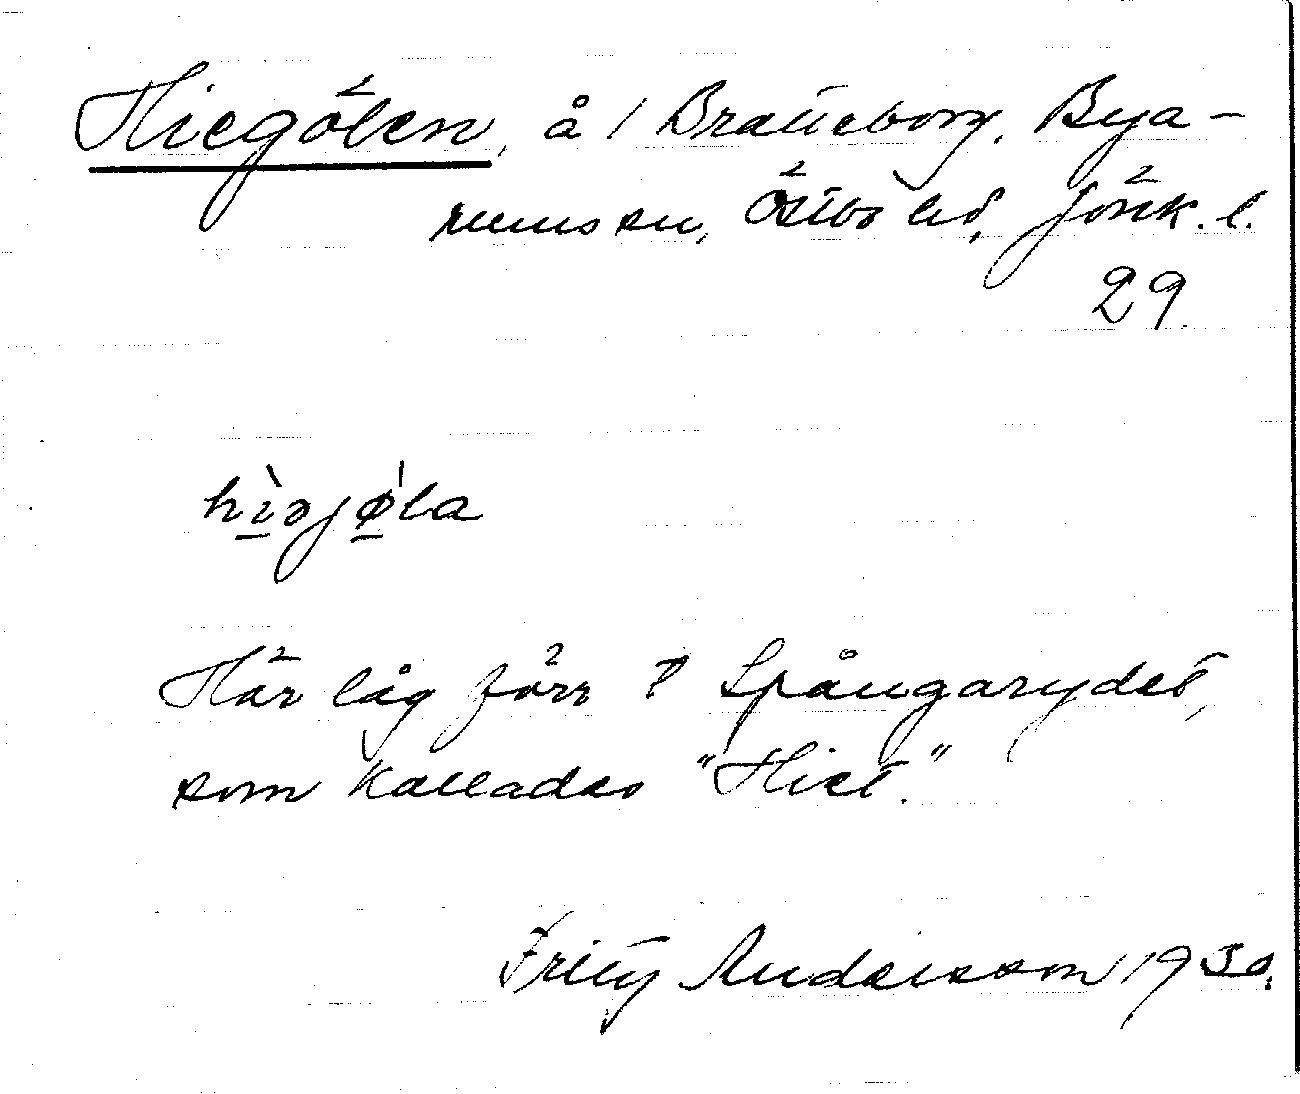 Hiegölen, å / Bratteborg. Bya-
rums sn, Östbo hd, Jönk. l.
29.
hìəjǿla
Här låg förr T Spångarydet,
som kallades "Hiet."
Fritz Andersson 1930.